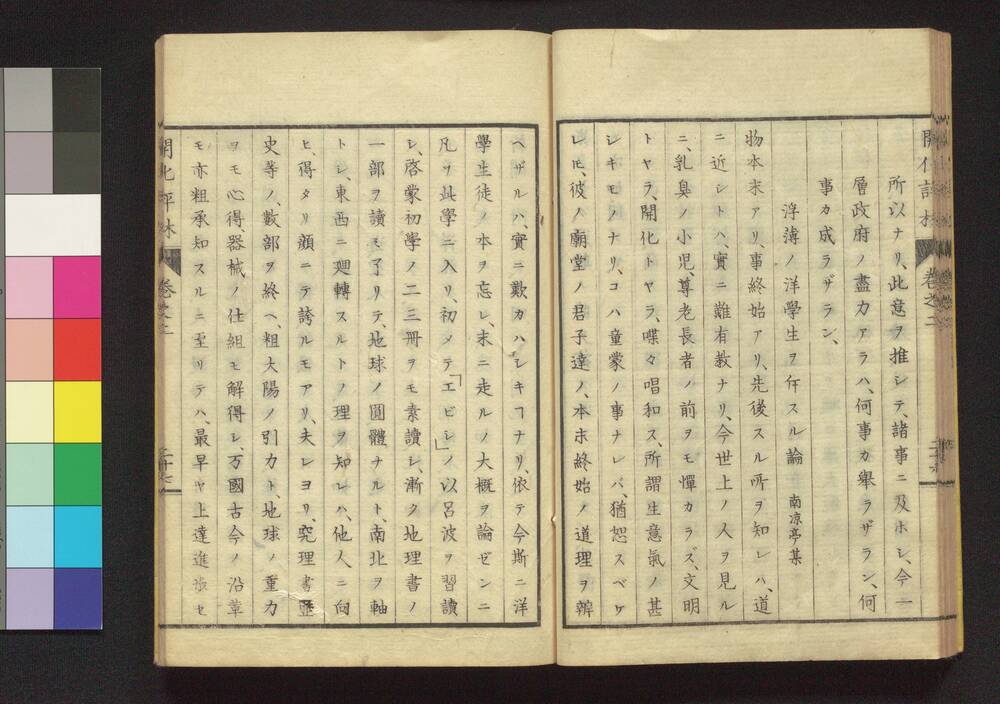 所以ナリ、此意ヲ推シテ、諸事ニ及ホシ、今一
層政府ノ盡力アラハ、何事カ舉ラザラン、何
事カ成ラザラン、
浮薄ノ洋學生ヲ斥スル論 南凉亭某
物本末アリ、事終始アリ、先後スル所ヲ知レハ、道
ニ近シトハ、實ニ難有教ナリ、今世上ノ人ヲ見ル
ニ、乳臭ノ小児、尊老長者ノ前ヲモ憚カラズ、文明
トヤラ、開化トヤラ、喋々唱和ス、所謂生意氣ノ甚
シキモノナリ、コハ童蒙ノ事ナレバ、猶恕スベケ
レ𪜈、彼ノ廟堂ノ君子達ノ、本末終始ノ道理ヲ辨
ヘザルハ、實ニ歎カハシキヿナリ、依テ今斯ニ洋
學生徒ノ本ヲ忘レ、末ニ走ルノ大概ヲ論ゼンニ
凡ヲ此學ニ入リ、初メテ「エビシ」ノ以呂波ヲ習讀
シ、啓蒙初學ノ二三冊ヲモ素讀シ、漸ク地理書ノ
一部ヲ讀モ了リテ、地球ノ圓體ナルト、南北ヲ軸
トシ、東西ニ廻轉スルトノ理ヲ知レハ、他人ニ向
ヒ、得タリ顔ニテ誇ルモアリ、夫レヨリ、究理書歴
史等ノ、數部ヲ終ヘ、粗大陽ノ引力ト、地球ノ重力
ヲモ心得、器械ノ仕組モ解得シ、万國古今ノ沿革
モ亦粗承知スルニ至リテハ、最早ヤ上達進歩セ
開化評林 卷之二 二十七